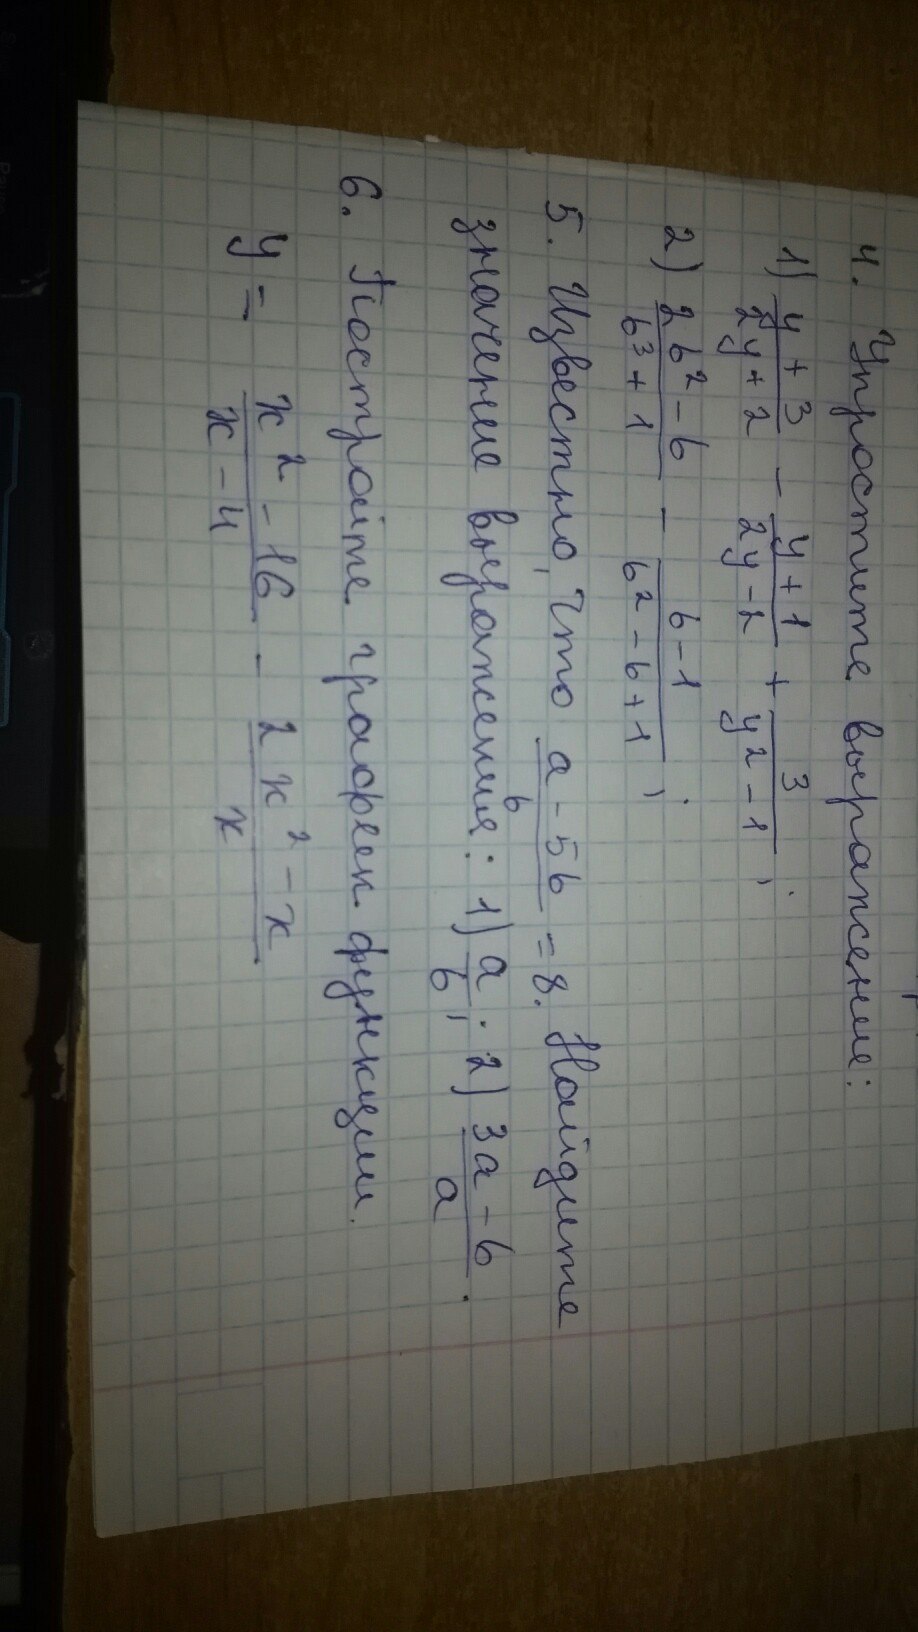 4. Упростите выражение:
1) (y + 3)/(2y + 2) - (y + 1)/(2y - 2) + 3/(y² - 1) ;
2) (2b² - b)/(b³ + 1) - (b - 1)/(b² - b + 1) ;
5. Известно, что (a - 5b)/b = 8. Найдите
значение выражения: 1) a/b ; 2) (3a - b)/a .
6. Постройте график функции.
y = (x² - 16)/(x - 4) - (2x² - x)/x